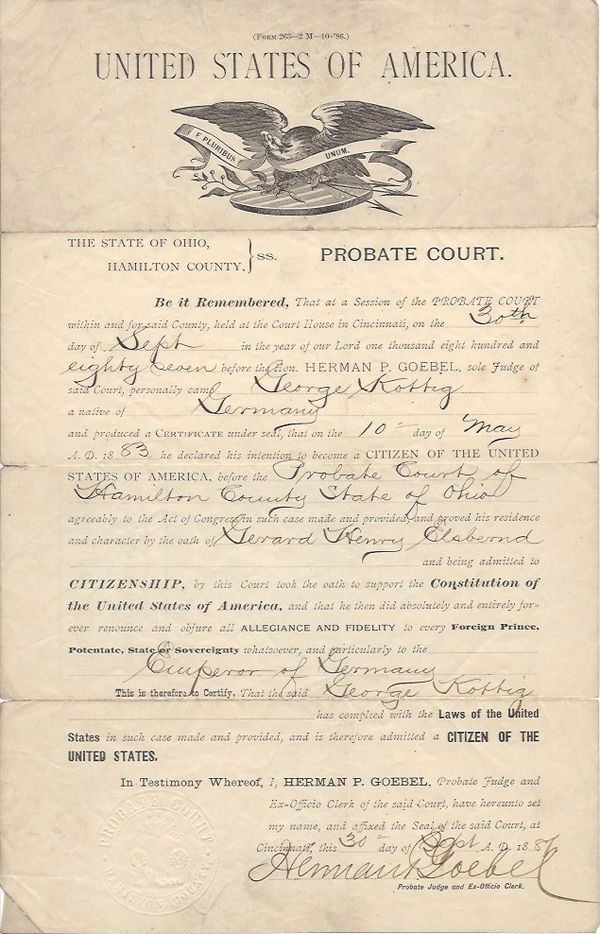 (Form 263—2 M—10-'86.)
UNITED STATES OF AMERICA.
E PLURIBUS UNUM.
THE STATE OF OHIO,
HAMILTON COUNTY. } ss. PROBATE COURT.
Be it Remembered, That at a Session of the PROBATE COURT
within and for said County, held at the Court House in Cincinnati, on the 30th
day of Sept in the year of our Lord one thousand eight hundred and
eighty seven before the Hon. HERMAN P. GOEBEL, sole Judge of
said Court, personally came George Kottig
a native of Germany
and produced a CERTIFICATE under seal, that on the 10 day of May
A. D. 1883 he declared his intention to become a CITIZEN OF THE UNITED
STATES OF AMERICA, before the Probate Court of
Hamilton County State of Ohio
agreeably to the Act of Congress in such case made and provided, and proved his residence
and character by the oath of Gerard Henry Elsbernd
and being admitted to
CITIZENSHIP, by this Court took the oath to support the Constitution of
the United States of America, and that he then did absolutely and entirely for-
ever renounce and objure all ALLEGIANCE AND FIDELITY to every Foreign Prince,
Potentate, State or Sovereignty whatsoever, and particularly to the
Emperor of Germany
This is therefore to Certify, That the said George Kottig
has complied with the Laws of the United
States in such case made and provided, and is therefore admitted a CITIZEN OF THE
UNITED STATES.
In Testimony Whereof, I, HERMAN P. GOEBEL, Probate Judge and
Ex-Officio Clerk of the said Court, have hereunto set
my name, and affixed the Seal of the said Court, at
Cincinnati, this 30 day of Sept A. D. 1887
Herman P Goebel
Probate Judge and Ex-Officio Clerk.
PROBATE COURT
HAMILTON COUNTY